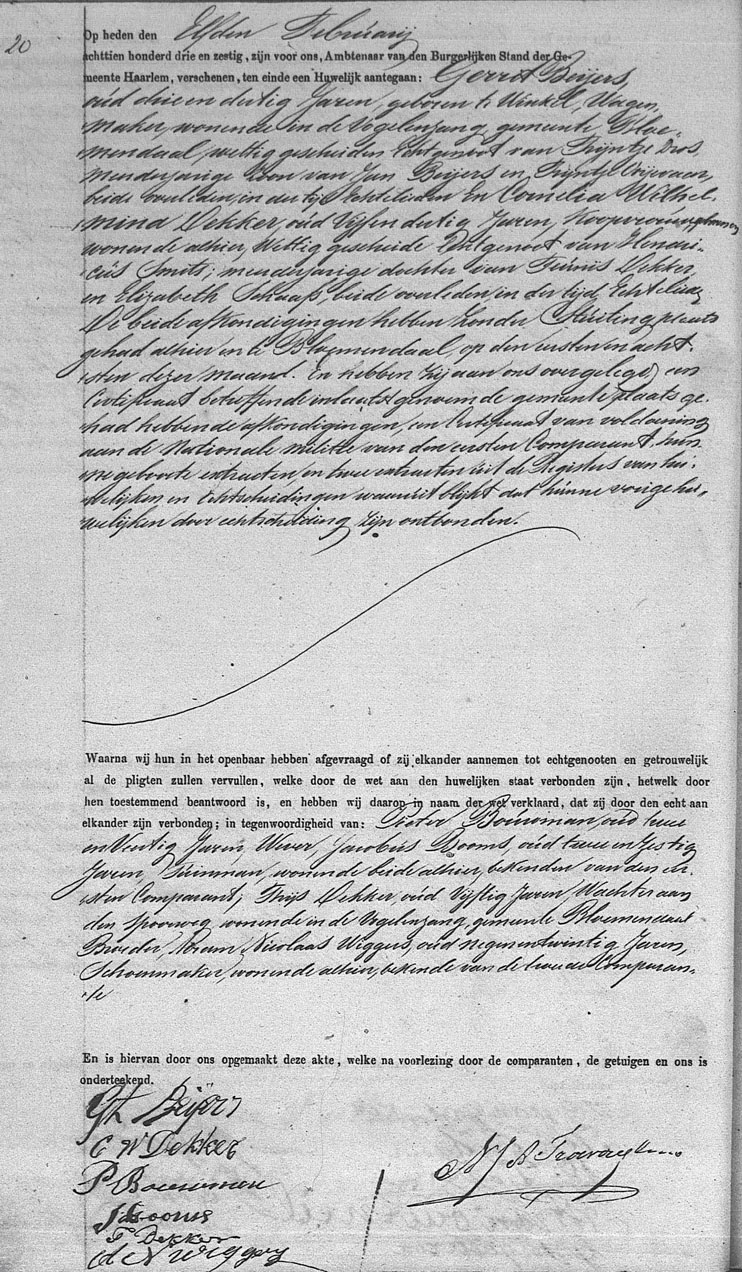 20
Op heden den Elfden Februarij
achttien honderd drie en zestig, zijn voor ons, Ambtenaar van den Burgerlijken Stand der Ge-
meente Haarlem, verschenen, ten einde een Huwelijk aantegaan: Gerrot Beijers
oud drie en dertig Jaren, geboren te Winkel, Wagen,
maker, wonende in de Vogelenzang, gemeente Bloe-
mendaal, wettig gescheiden Echtgenoot van Trijntje Dros,
meerderjarige Zoon van Jan Beijers en Trijntje
beide overleden, in der tijd Echtelieden En Cornelia Wilhel-
mina Dekker, oud Vijf en dertig Jaren,
wonende alhier, Wettig gescheide Echtgenoot van Hendri-
cus Smits, meerderjarige dochter van Teunis Dekker
en Elizabeth Schaap, beide overleden, in der tijd Echtelieden
De beide afkondigingen hebben zonder Stuiting plaats
gehad alhier en te Bloemendaal, op den eersten en acht-
sten dezer maand. En hebben zij aan ons overgelegd een
Certificaat betreffende in laatstgenoemde gemeente plaats ge-
had hebbende afkondigingen, een Certificaat van voldoening
aan de Nationale militie van den eersten Comparant, hun-
ne geboorte extracten en twee extracten uit de Registers van hu-
welijken en Echtscheidingen waaruit blijkt dat hunne vorige hu-
welijken door echtscheiding zijn ontbonden.
Waarna wij hun in het openbaar hebben afgevraagd of zij elkander aannemen tot echtgenooten en getrouwelijk
al de pligten zullen vervullen, welke door de wet aan den huwelijken staat verbonden zijn, hetwelk door
hen toestemmend beantwoord is, en hebben wij daarop in naam der wet verklaard, dat zij door den echt aan
elkander zijn verbonden; in tegenwoordigheid van: Pieter Bouwman, oud twee
en Veertig Jaren, Wever, Jacobus Dooms, oud twee en Zestig
Jaren, Tuinman, wonende beide alhier, bekenden van den eer-
sten Comparant; Thijs Dekker, oud Vijftig Jaren, Wachter aan
den Spoorweg, wonende in de Vogelenzang, gemeente Bloemendaal
Broeder, Abram Nicolaas Wiggers, oud negen en twintig Jaren,
Schoenmaker, wonende alhier, bekende van de tweede Comparan-
te
En is hiervan door ons opgemaakt deze akte, welke na voorlezing door de comparanten, de getuigen en ons is
onderteekend.
Gt Beijers
C W Dekker
P Bouwman
J Dooms
T Dekker